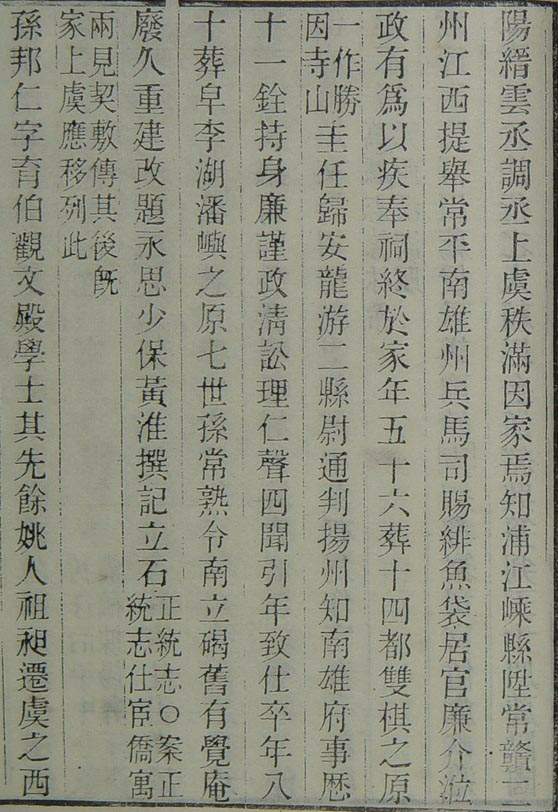 陽縉雲丞調丞上虞秩滿因家焉知浦江嵊縣陞常贛二
州江西提舉常平南雄州兵馬司賜緋魚袋居官廉介涖
政有爲以疾奉祠終於家年五十六葬十四都雙棋之原
一作勝
因寺山
主任歸安龍游二縣尉通判揚州知南雄府事歷
十一銓持身廉謹政淸訟理仁聲四聞引年致仕卒年八
十葬皁李湖潘嶼之原七世孫常熟令南立碣舊有覺庵
廢久重建改題永思少保黃淮撰記立石
正統志○案正
統志仕宦僑寓
兩見契敷傳其後旣
家上虞應移列此
孫邦仁字育伯觀文殿學士其先餘姚人祖昶遷虞之西